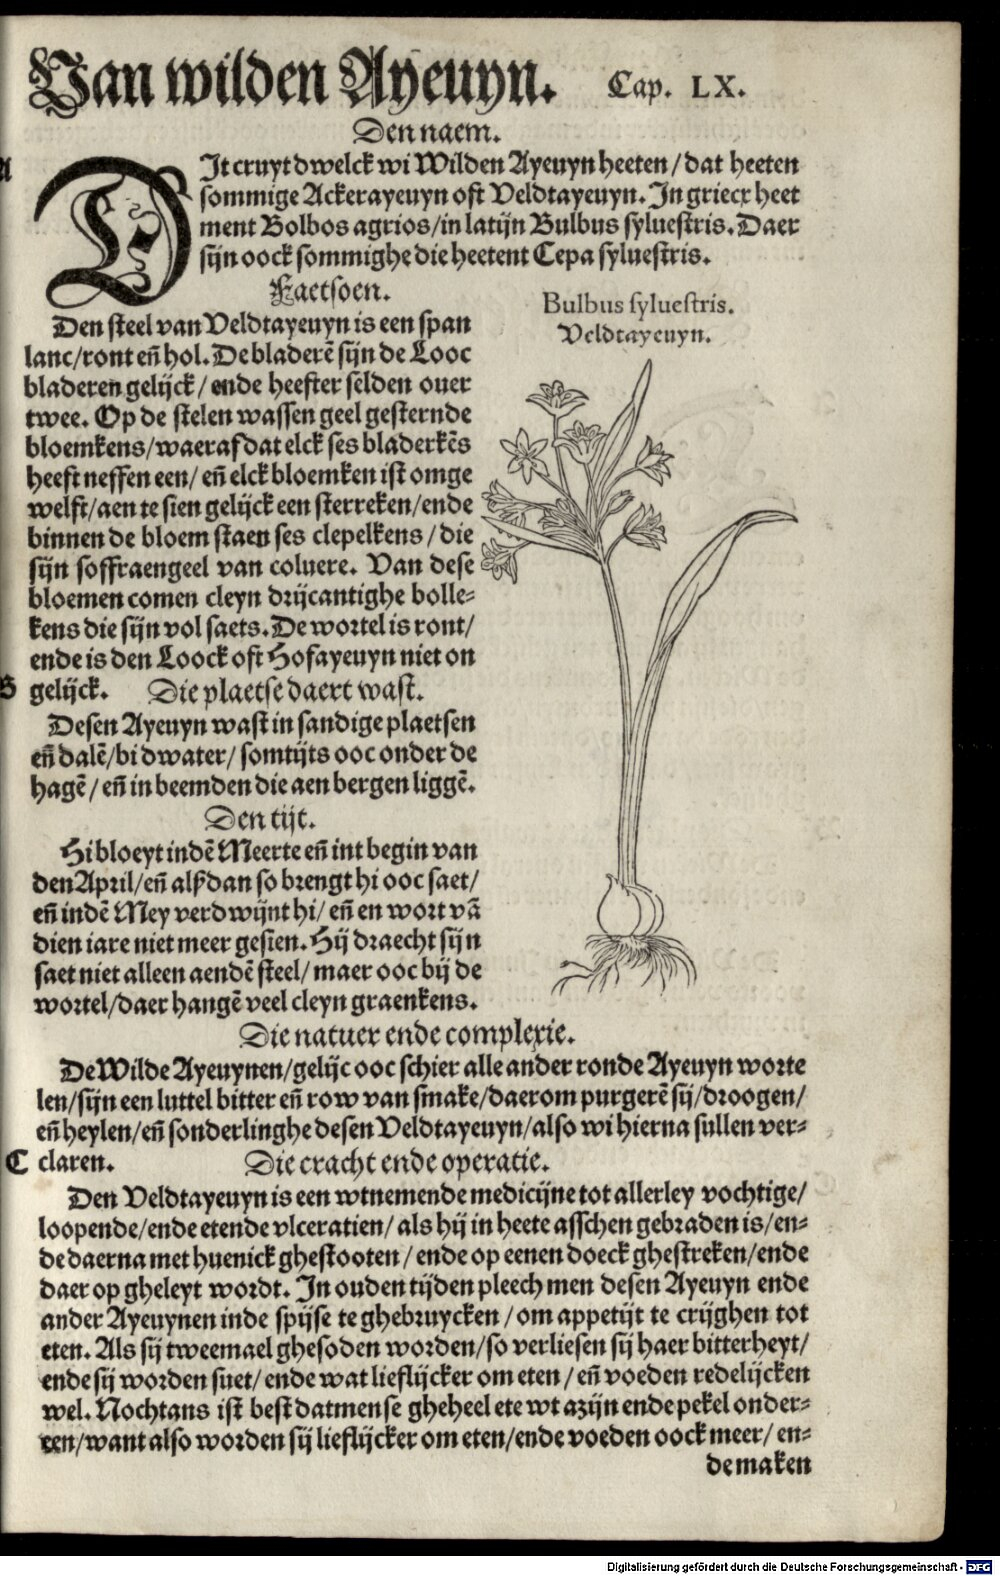 Van wilden Ayeuyn. Cap. LX.
Den naem.
A
DJt cruyt dwelck wi Wilden Ayeuyn heeten/ dat heeten
sommige Ackerayeuyn oft Veldtayeuyn. In griecx heet
ment Bolbos agrios/ in latijn Bulbus syluestris. Daer
sijn oock sommighe die heetent Cepa syluestris.
Faetsoen.
Bulbus syluestris.
Veldtayeuyn.
Den steel van Veldtayeuyn is een span
lanc/ ront eñ hol. De bladerē sijn de Looc
bladeren gelijck/ ende heefter selden ouer
twee. Op de stelen wassen geel gesternde
bloemkens/ waeraf dat elck ses bladerkēs
heeft neffen een/ eñ elck bloemken ist omge
welft/ aen te sien gelijck een sterreken/ ende
binnen de bloem staen ses clepelkens/ die
sijn soffraengeel van coluere. Van dese
bloemen comen cleyn drijcantighe bolle-
kens die sijn vol saets. De wortel is ront/
ende is den Loock oft Hofayeuyn niet on
B
gelijck. Die plaetse daert wast.
Desen Ayeuyn wast in sandige plaetsen
eñ dalē/ bi dwater/ somtijts ooc onder de
hagē/ eñ in beemden die aen bergen liggē.
Den tijt.
Hi bloeyt indē Meerte eñ int begin van
den April/ eñ alsdan so brengt hi ooc saet/
eñ indē Mey verdwijnt hi/ eñ en wort vā
dien iare niet meer gesien. Hij draecht sijn
saet niet alleen aendē steel/ maer ooc bij de
wortel/ daer hangē veel cleyn graenkens.
Die natuer ende complexie.
De Wilde Ayeuynen/ gelijc ooc schier alle ander ronde Ayeuyn worte
len/ sijn een luttel bitter eñ row van smake/ daerom purgerē sij/ droogen/
eñ heylen/ eñ sonderlinghe desen Veldtayeuyn/ also wi hierna sullen ver-
C
claren. Die cracht ende operatie.
Den Veldtayeuyn is een wtnemende medicijne tot allerley vochtige/
loopende/ ende etende vlceratien/ als hij in heete asschen gebraden is/ en-
de daerna met huenick ghestooten/ ende op eenen doeck ghestreken/ ende
daer op gheleyt wordt. In ouden tijden pleech men desen Ayeuyn ende
ander Ayeuynen inde spijse te ghebruycken/ om appetijt te crijghen tot
eten. Als sij tweemael ghesoden worden/ so verliesen sij haer bitterheyt/
ende sij worden suet/ ende wat lieflijcker om eten/ eñ voeden redelijcken
wel. Nochtans ist best datmense gheheel ete wt azijn ende pekel onder-
een/ want also worden sij lieflijcker om eten/ ende voeden oock meer/ en-
de maken
Digitalisierung gefördert durch die Deutsche Forschungsgemeinschaft - DFG